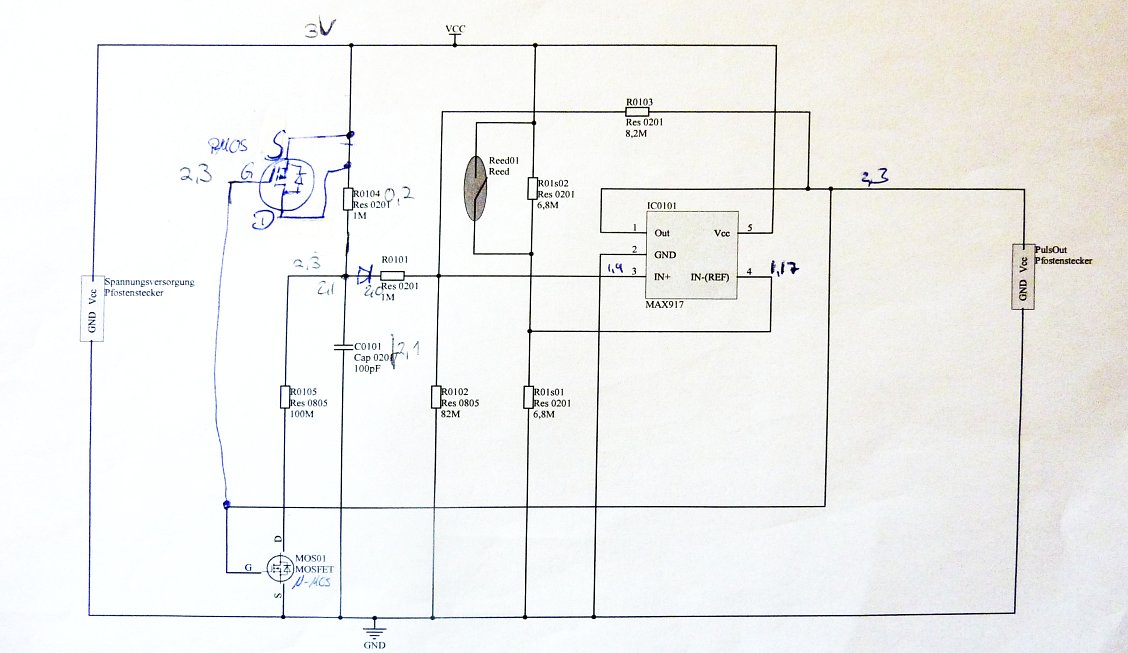 3V
VCC
R0103
Res 0201
8,2M
PMOS
S
2,3
G
D
Reed01
Reed
R0104
Res 0201
1M
0,2
R01s02
Res 0201
6,8M
2,3
IC0101
1
Out
Vcc
5
2
GND
1,4
3
IN+
IN-(REF)
4
1,17
MAX917
PulsOut
Pfostenstecker
GND Vcc
Spannungsversorgung
Pfostenstecker
GND Vcc
2,3
2,1
R0101
Res 0201
1M
C0101
Cap 0201
100pF
2,1
R0105
Res 0805
100M
R0102
Res 0805
82M
R01s01
Res 0201
6,8M
D
G
S
MOS01
MOSFET
N-MOS
GND